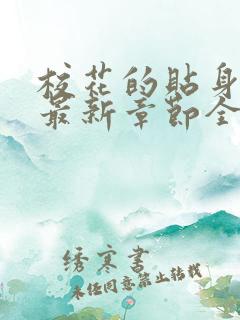 校花的贴身
最新章节全
绣寒书
未经同意禁止转载